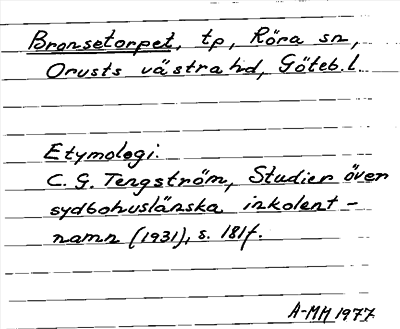 Bronsetorpet, tp, Röra sn,
Orusts västra hd, Göteb.l.
Etymologi.
C. G. Tengström, Studier över
sydbohuslänska inkolent-
namn (1931), s. 181f.
A-MM 1977